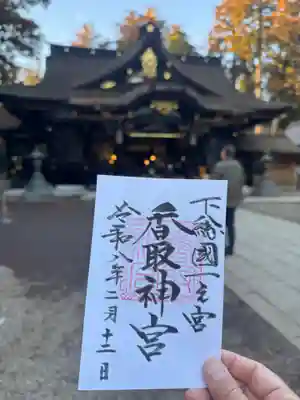 下総國一之宮
香取神宮
令和八年二月十二日